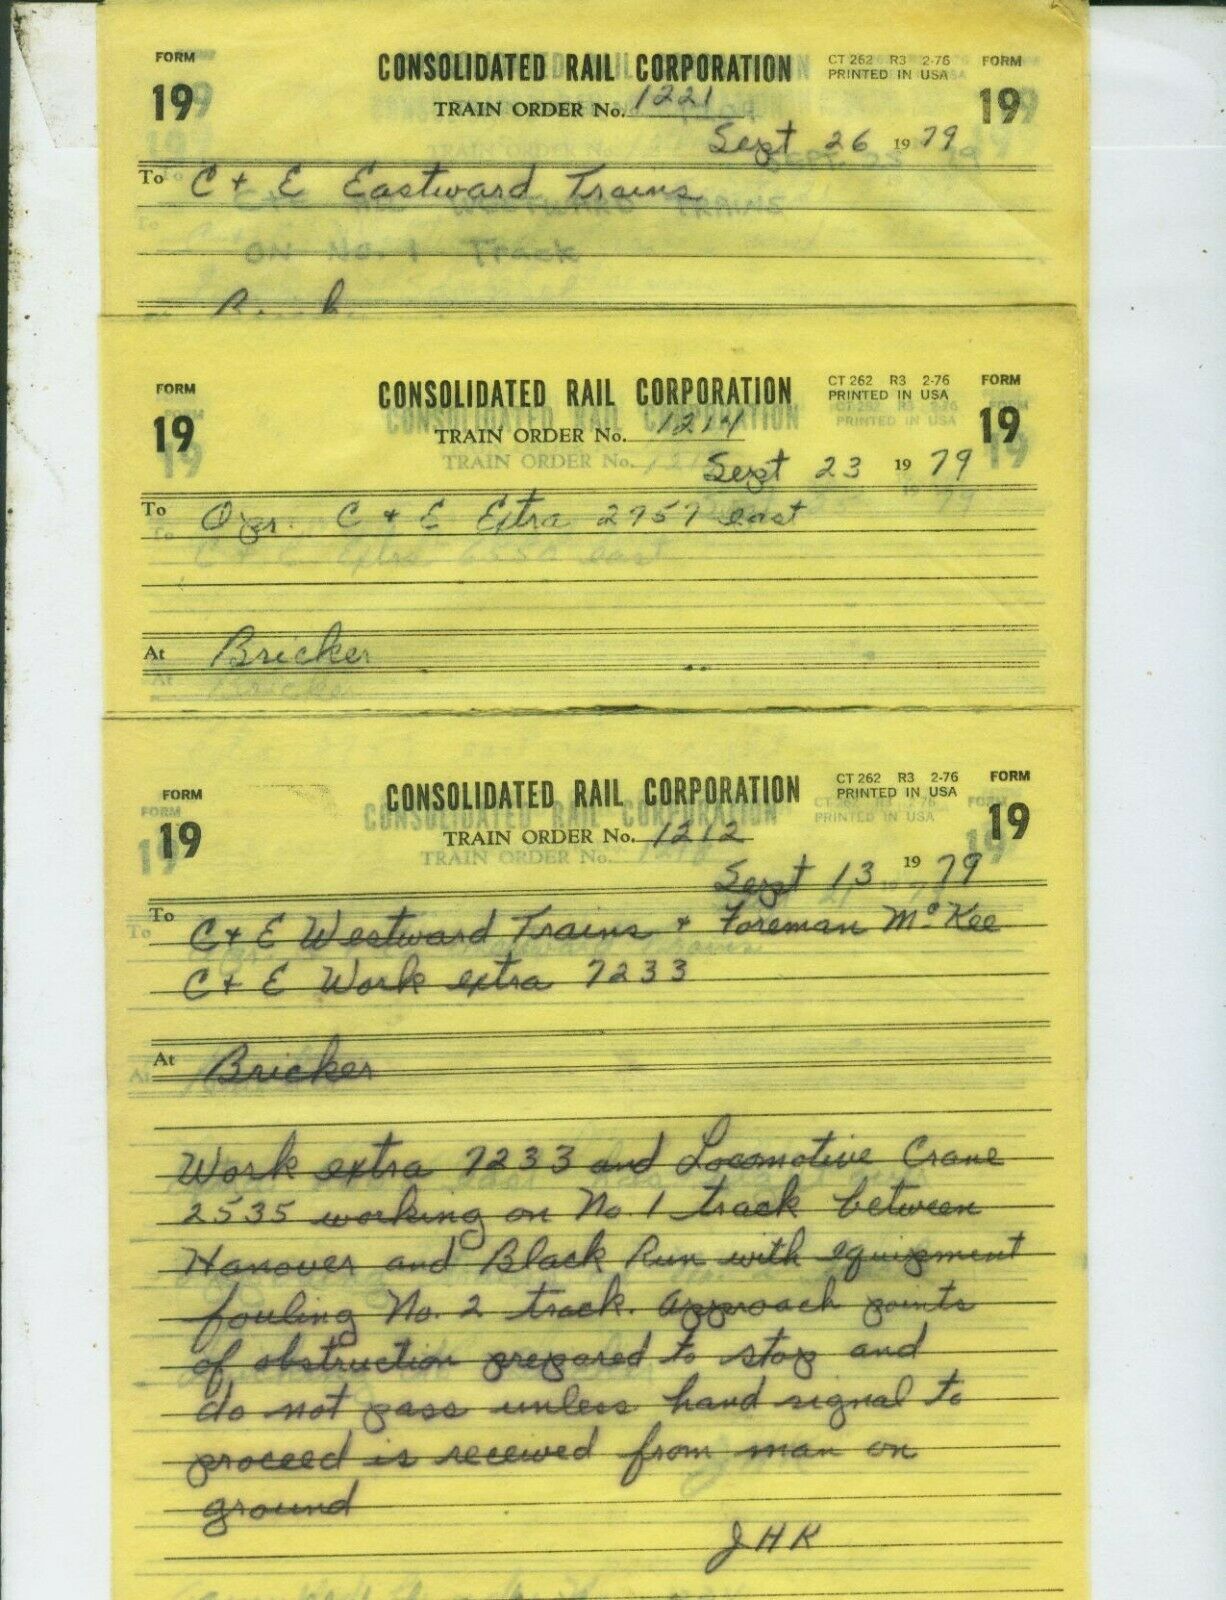 FORM CONSOLIDATED RAIL CORPORATION CT 262 R3 2-76 FORM
19 PRINTED IN USA 19
TRAIN ORDER No. 1221
Sept 26 1979
To C & E Eastward Trains
C & E ALL WESTWARD TRAINS
ON No. 1 Track
FORM CONSOLIDATED RAIL CORPORATION CT 262 R3 2-76 FORM
19 PRINTED IN USA 19
TRAIN ORDER No. 1214
Sept 23 1979
To Opr. C & E Extra 2757 east
C & E Extra 6550 east
At Bricker
FORM CONSOLIDATED RAIL CORPORATION CT 262 R3 2-76 FORM
19 PRINTED IN USA 19
TRAIN ORDER No. 1212
Sept 13 1979
To C & E Westward Trains & Foreman McKee
C & E Work extra 7233
At Bricker
Work extra 7233 and Locomotive Crane
2535 working on No. 1 track between
Hanover and Black Run with equipment
fouling No. 2 track. Approach points
of obstruction prepared to stop and
do not pass unless hand signal to
proceed is received from man on
ground
JHK